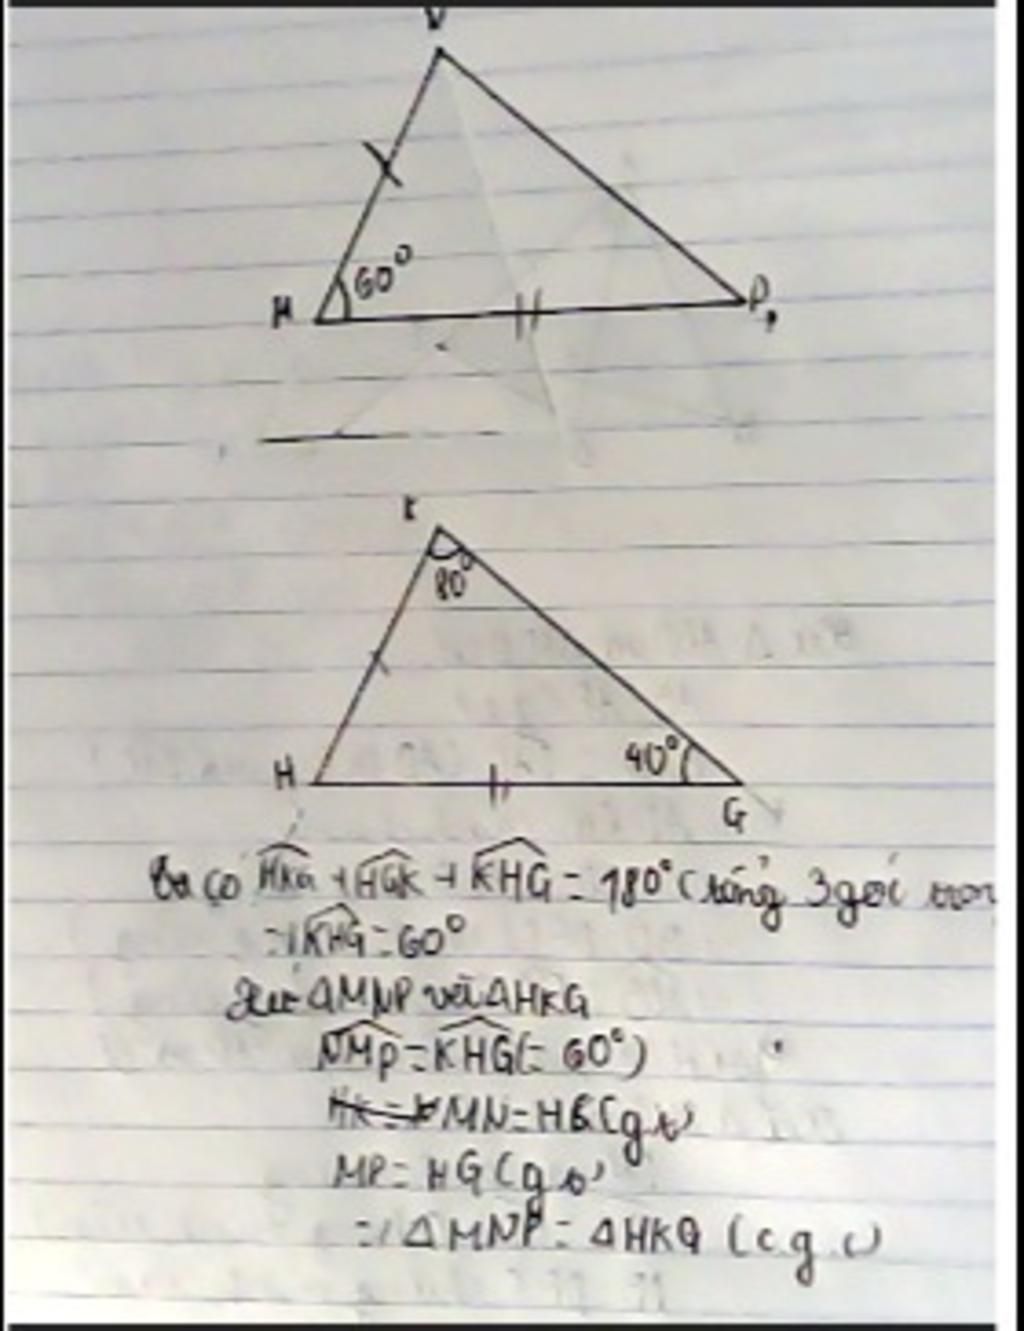 N
60°
M
P
K
80°
40°
H
G
Ta có HKG + HGK + KHG = 180° (tổng 3 góc tron
=> KHG = 60°
Xét ΔMNP với ΔHKG
NMP = KHG (= 60°)
MN = HK (gt)
MP = HG (gt)
=> ΔMNP = ΔHKG (c.g.c)